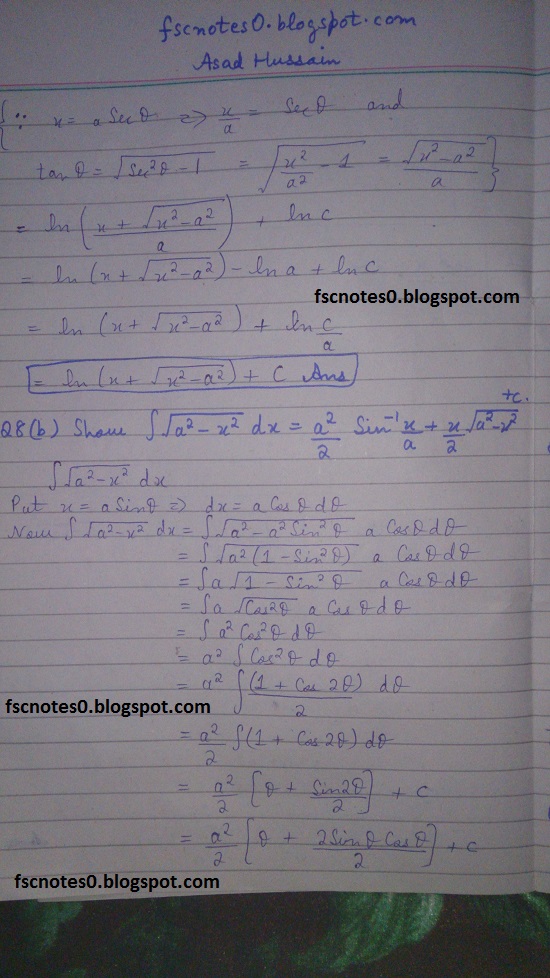 fscnotes0.blogspot.com
Asad Hussain
{∵ x = a Secθ ⇒ x/a = Secθ and
tanθ = √(Sec²θ − 1) = √(x²/a² − 1) = √(x² − a²)/a}
= ln((x + √(x² − a²))/a) + ln c
= ln(x + √(x² − a²)) − ln a + ln c
fscnotes0.blogspot.com
= ln(x + √(x² − a²)) + ln c/a
= ln(x + √(x² − a²)) + C Ans
Q8(b) Show ∫√(a² − x²) dx = a²/2 Sin⁻¹ x/a + x/2 √(a² − x²) + c.
∫√(a² − x²) dx
Put x = a Sinθ ⇒ dx = a Cosθ dθ
Now ∫√(a² − x²) dx = ∫√(a² − a² Sin²θ) a Cosθ dθ
= ∫√(a²(1 − Sin²θ)) a Cosθ dθ
= ∫a √(1 − Sin²θ) a Cosθ dθ
= ∫a √(Cos2θ) a Cosθ dθ
= ∫a² Cos²θ dθ
= a² ∫Cos²θ dθ
= a² ∫(1 + Cos 2θ)/2 dθ
fscnotes0.blogspot.com
= a²/2 ∫(1 + Cos2θ) dθ
= a²/2 [θ + Sin2θ/2] + c
= a²/2 [θ + 2Sinθ Cosθ/2] + c
fscnotes0.blogspot.com